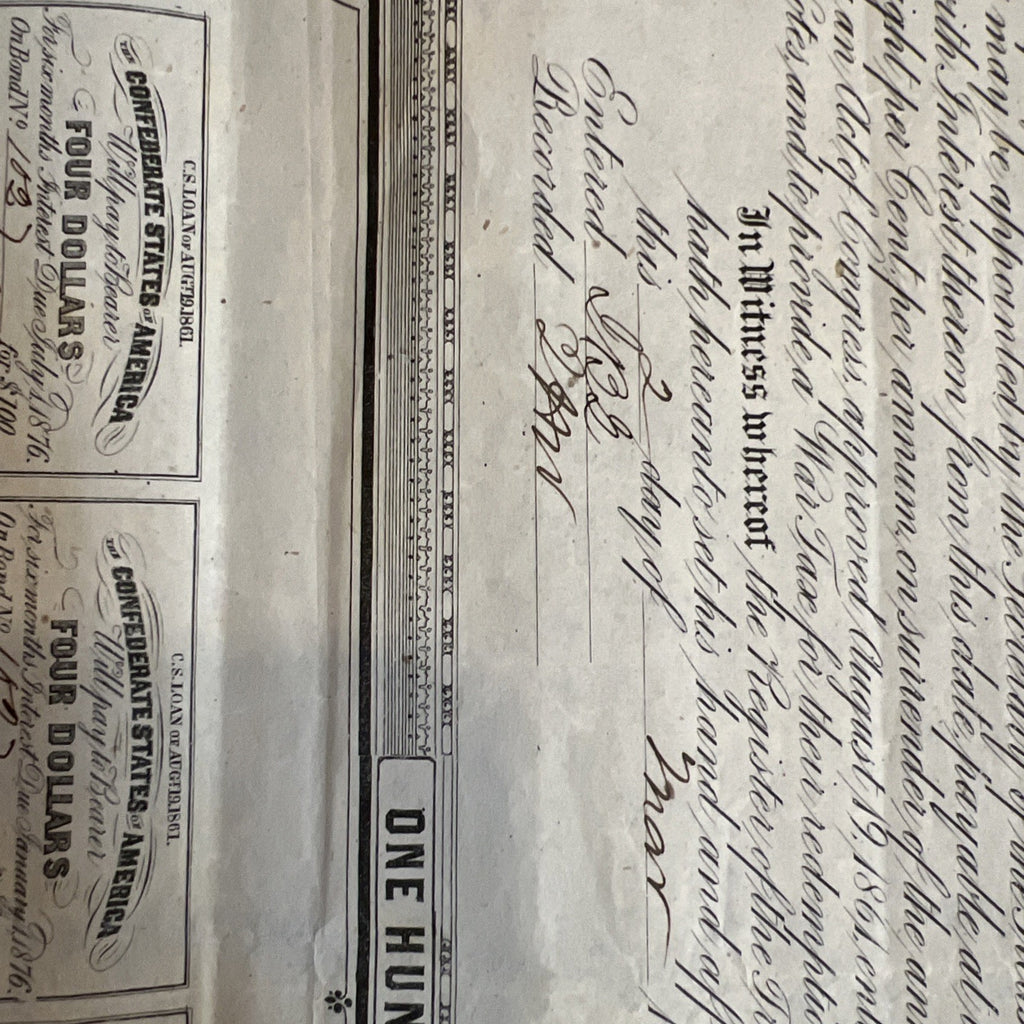 may be appointed by the Secretary of the
with Interest thereon from this date, payable at
ight per Cent, per annum, on surrender of the
an Act of Congress, approved August 19, 1861, en
otes, and to provide a War Tax for their redemptio
In Witness whereof the Register of the
hath hereunto set his hand and aff
this 2 day of Mar
Entered
Recorded
ONE HUN
C.S. LOAN OF AUGT 19.1861.
THE CONFEDERATE STATES OF AMERICA
Will pay to Bearer
FOUR DOLLARS
For six months Interest Due July 1. 1876.
On Bond No. for $100
C.S. LOAN OF AUGT 19.1861.
THE CONFEDERATE STATES OF AMERICA
Will pay to Bearer
FOUR DOLLARS
For six months Interest Due January 1. 1876.
On Bond No.